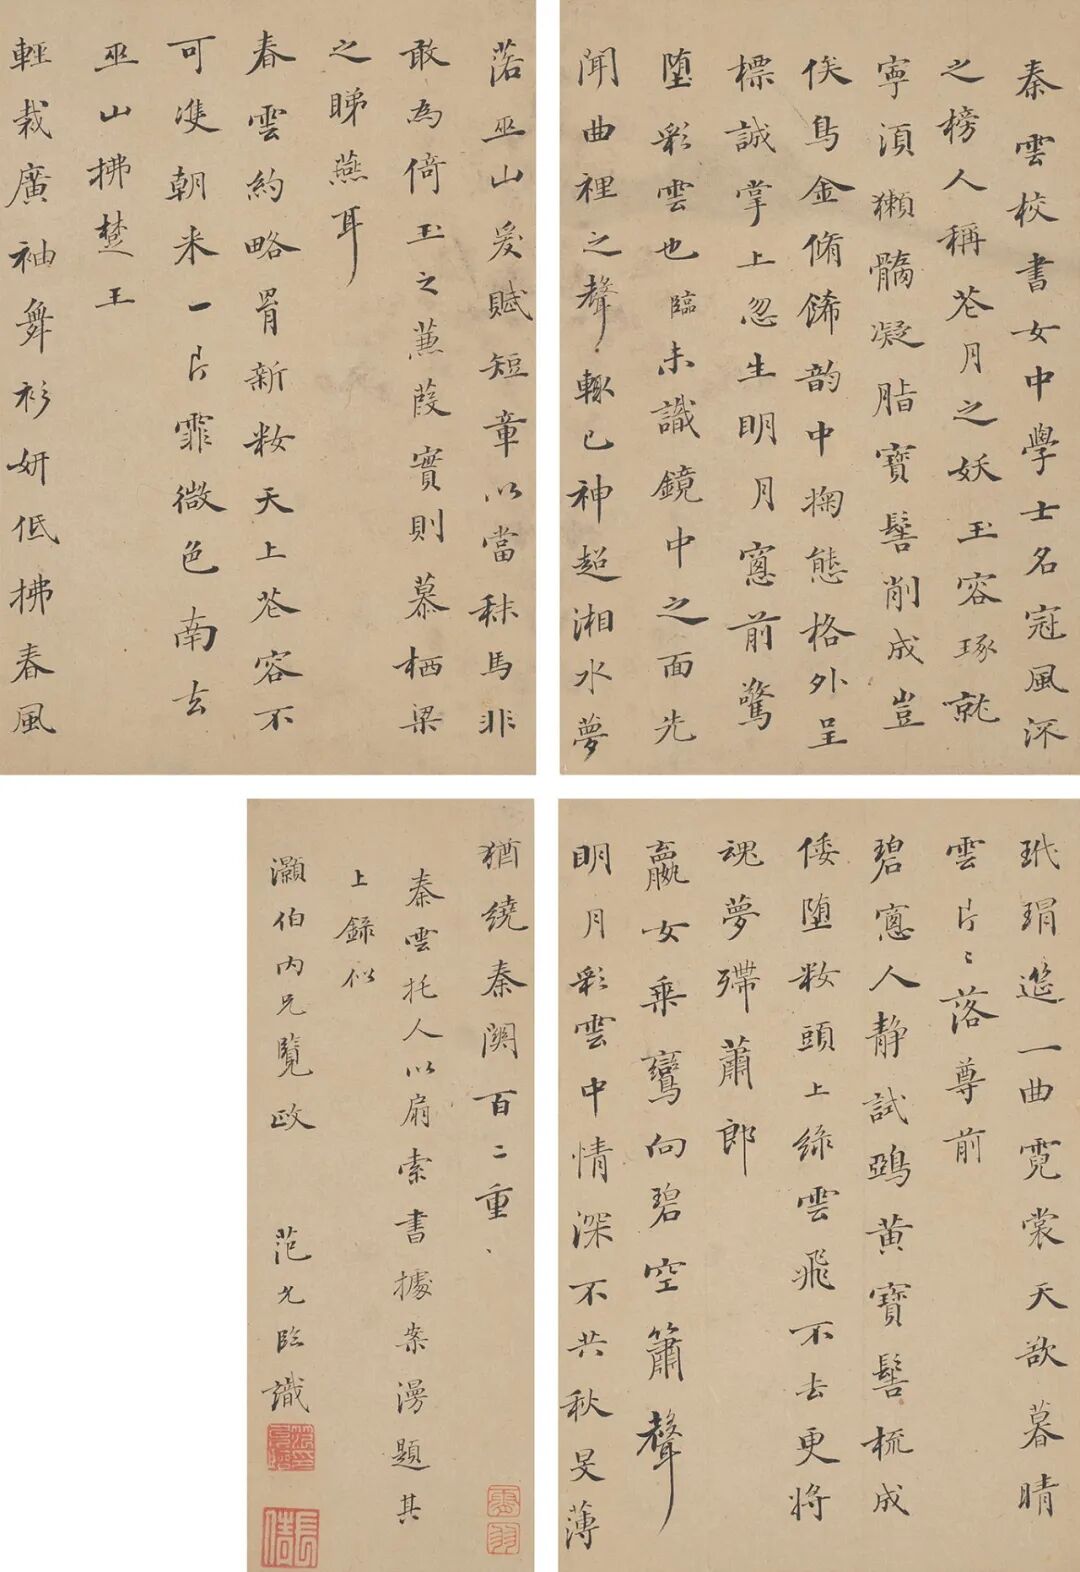 秦雲校書女中學士名冠風流
之榜人稱花月之妖玉容琢就
寧湏獺髓凝脂寶髻削成豈
俟鳥金脩餙韵中掬態格外呈
標誠掌上忽生明月窻前驚
墮彩雲也臨未識鏡中之面先
聞曲裡之聲輒已神超湘水夢
落巫山爰賦短章以當秣馬非
敢為倚玉之蒹葭實則慕栖梁
之睇燕耳
春雲約略罥新粧天上花容不
可雙朝來一片霏微色南去
巫山拂楚王
輕裁廣袖舞衫妍低拂春風
玳瑁筵一曲霓裳天欲暮晴
雲片〻落尊前
碧窻人静試鵶黄寶髻梳成
倭堕粧頭上綠雲飛不去更將
魂夢殢蕭郎
嬴女乗鸞向碧空簫聲
明月彩雲中情深不共秋旻薄
猶繞秦関百二重
秦雲托人以扇索書據案漫題其
上錄似
灝伯内兄覽政 范允臨識